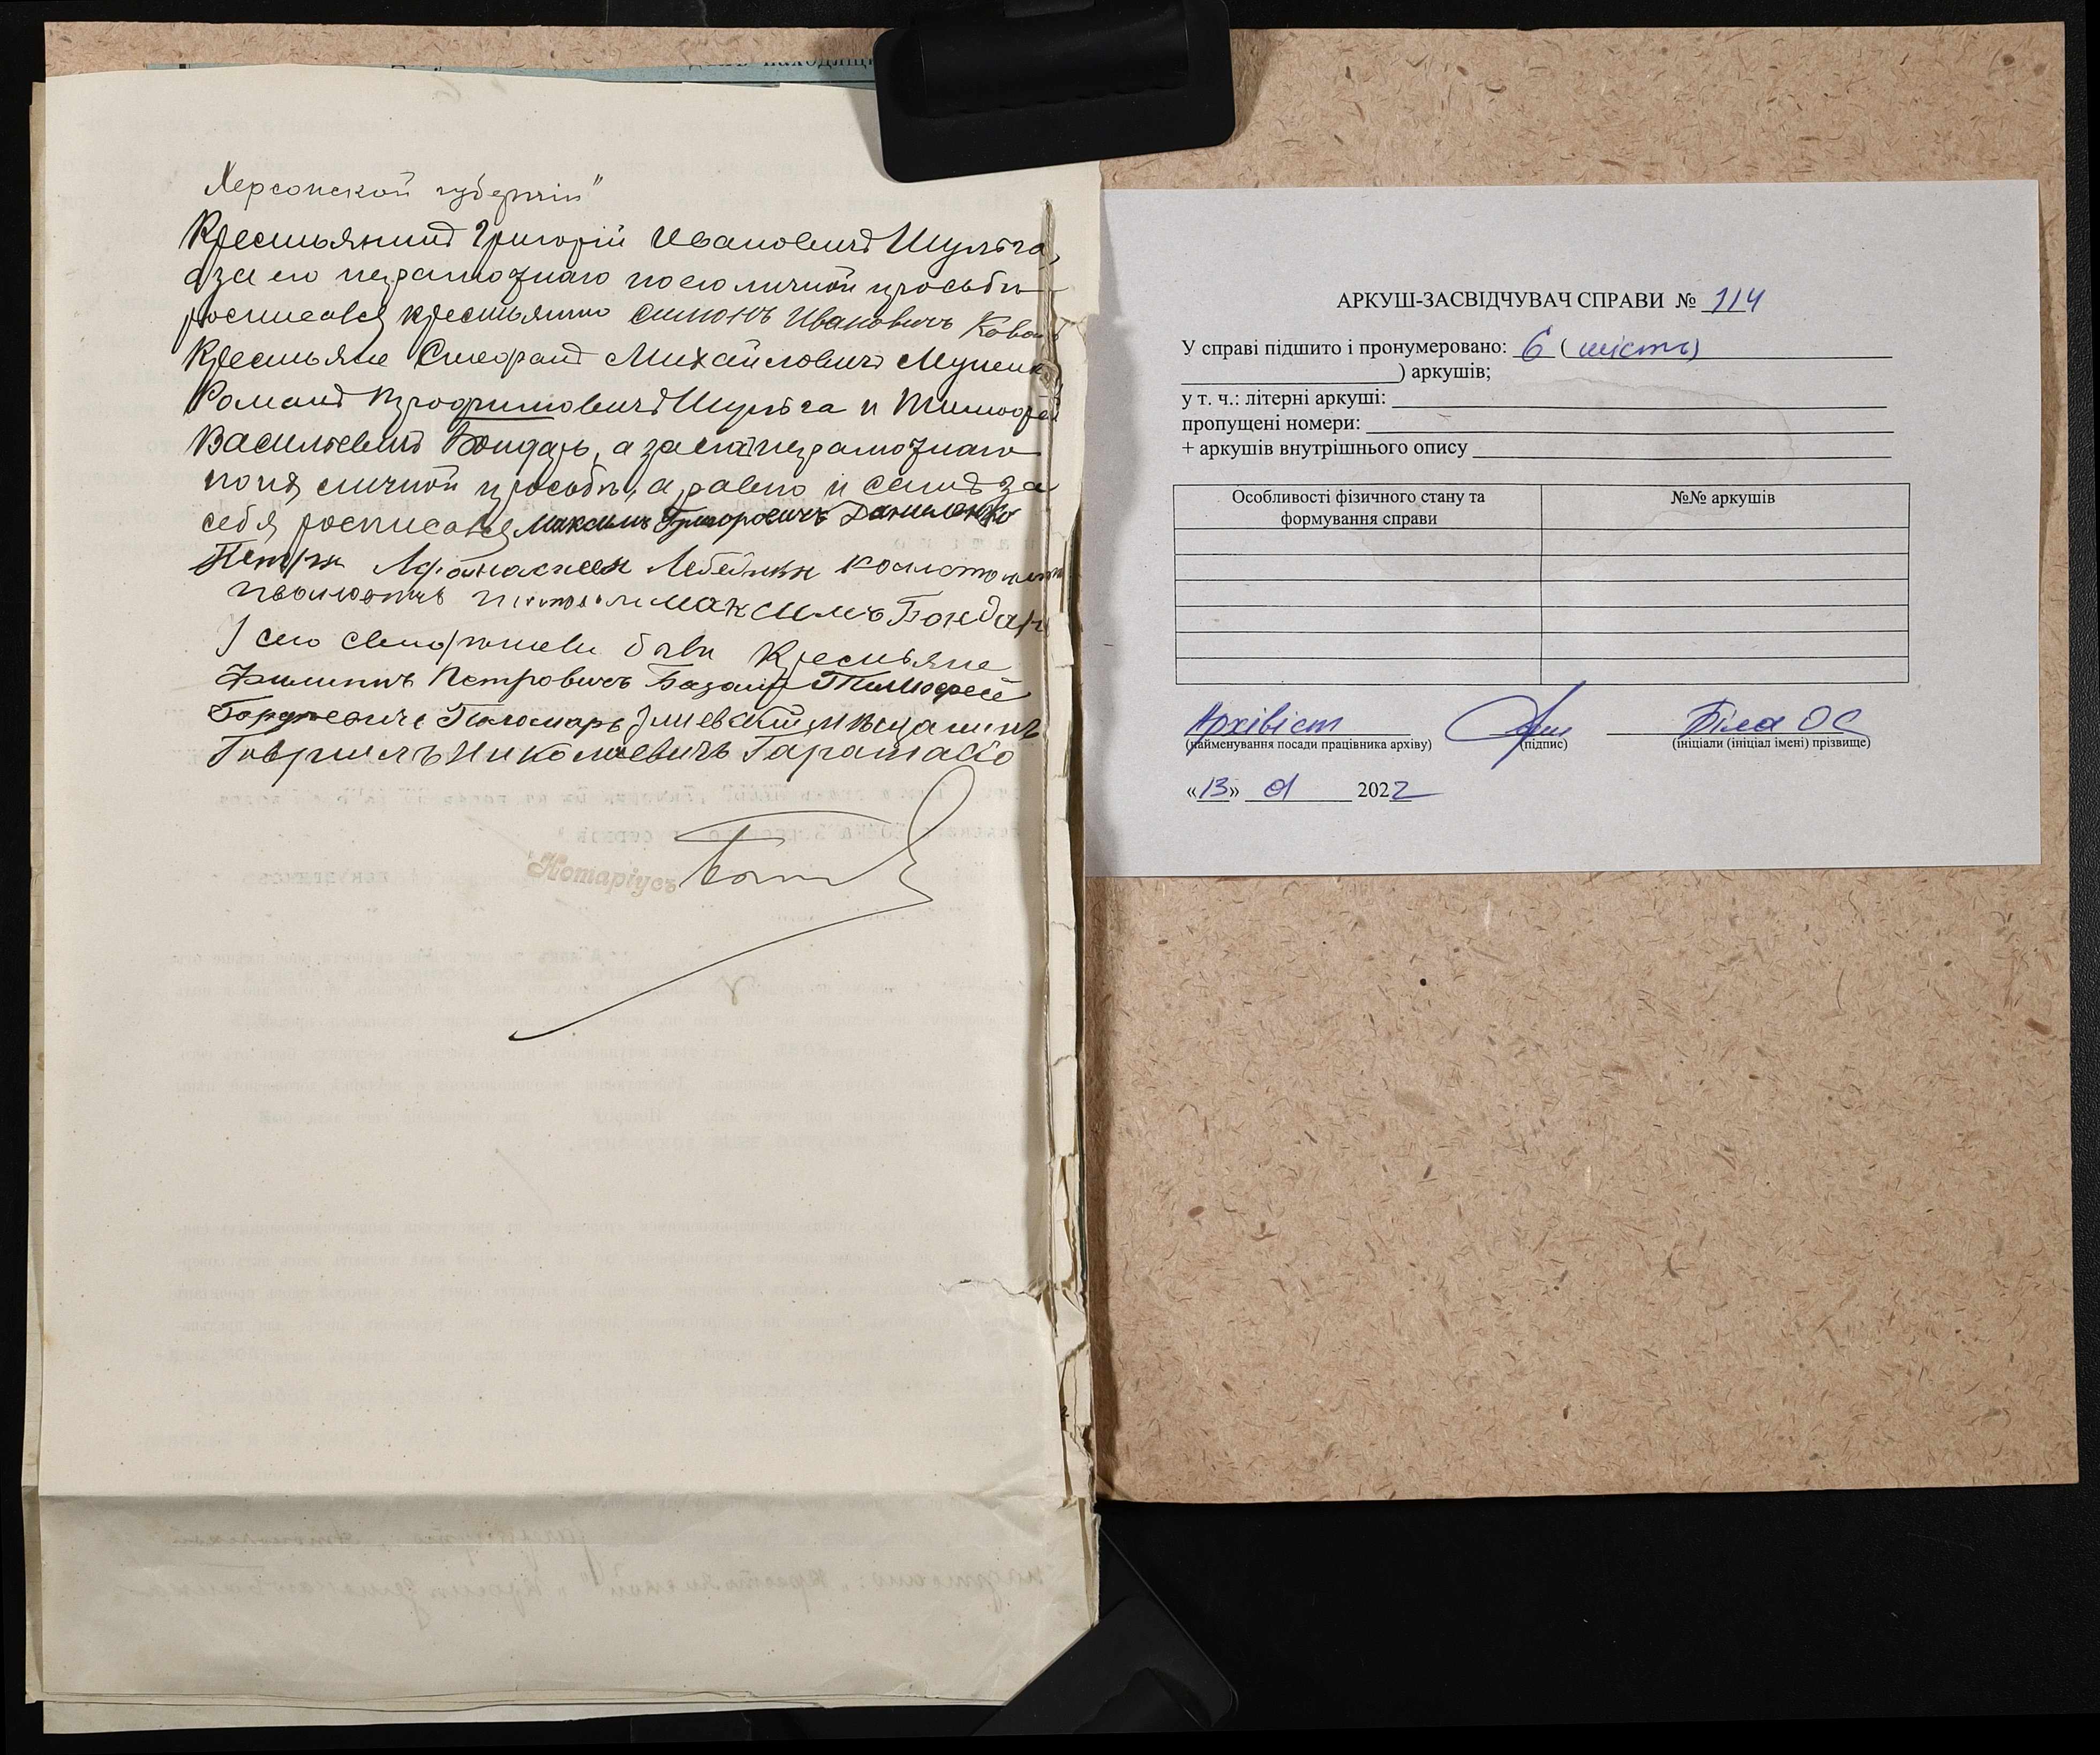 Херсонской губерніи"
Крестьянинъ Григорій Ивановичъ Шульга,
а за его неграмотнаго по его личной просьбѣ
росписался крестьянинъ Симонъ Ивановичъ Коваль
Крестьяне Стефанъ Михайловичъ
Романъ Трофимовичъ Шульга и Тимофей
Васильевичъ Бондарь, а за неграмотнаго
личной просьбѣ, а равно и самъ за
себя росписался Максимъ Григоровичъ Даниленко
Петръ Афанасиевъ
Максимъ Бондар
У сего свидѣтелями были Крестьяне
Филиппъ Петровичъ Базалій Тимофей
Гордѣевичъ Пономарь Змиевский мѣщанинъ
Говриилъ Николаевичъ Таратайко
Нотаріусъ
АРКУШ-ЗАСВІДЧУВАЧ СПРАВИ № 114
У справі підшито і пронумеровано: 6 ( шість)
) аркушів;
у т. ч.: літерні аркуші:
пропущені номери:
+ аркушів внутрішнього опису
Особливості фізичного стану та формування справи
№№ аркушів
Архівіст Біла ОС
(найменування посади працівника архіву) (підпис) (ініціали (ініціал імені) прізвище)
«13» 01 2022